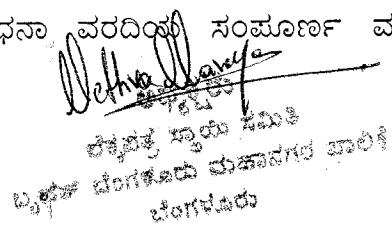 ವರದಿಯ ಸಂಪೂರ್ಣ
ಅಧ್ಯಕ್ಷರು
ಲೆಕ್ಕಪತ್ರ ಸ್ಥಾಯಿ ಸಮಿತಿ
ಬೃಹತ್ ಬೆಂಗಳೂರು ಮಹಾನಗರ ಪಾಲಿಕೆ
ಬೆಂಗಳೂರು